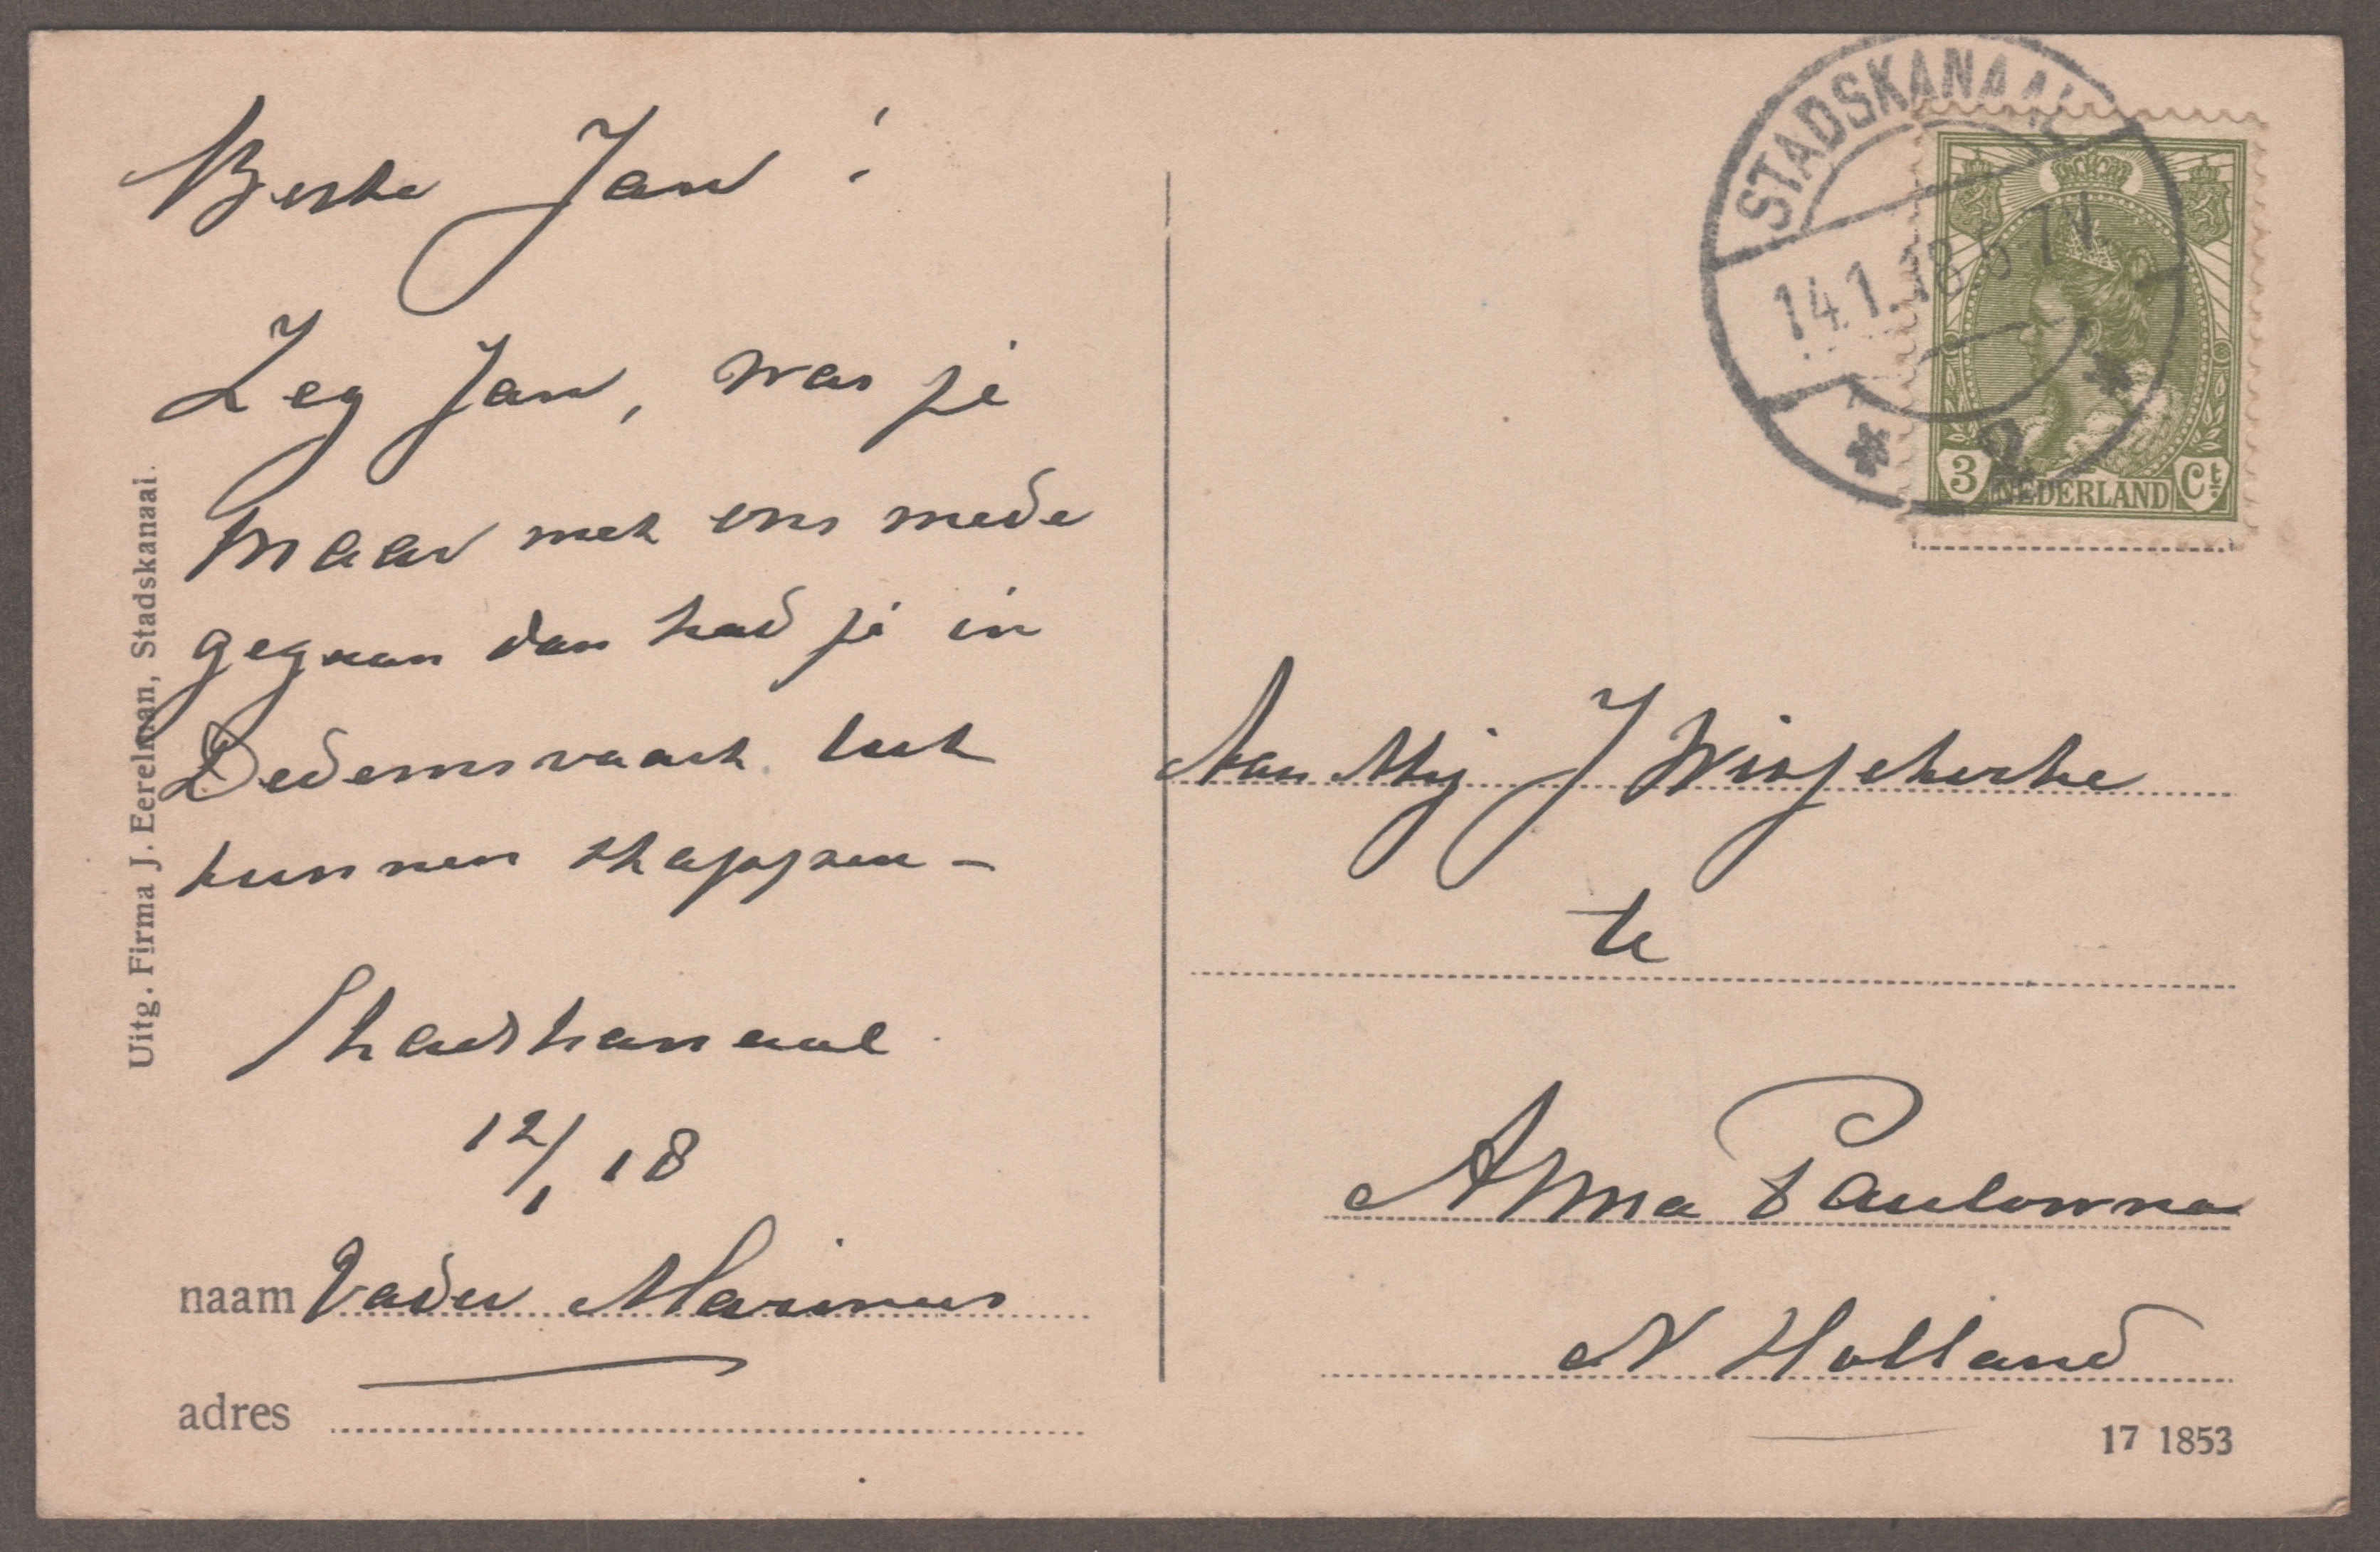 Beste Jan!
Zeg Jan, was je
maar met ons mede
gegaan dan had je in
Dedemsvaart lust
kunnen stappen –
Stadskanaal
12/1 18
naam Vader Marinus
adres
Uitg. Firma J. Eerelman, Stadskanaal.
STADSKANAAL
14.1.18 6-7N
2
3 NEDERLAND Ct.
Aan Mej J
te
Anna Paulowna
N Holland
17 1853